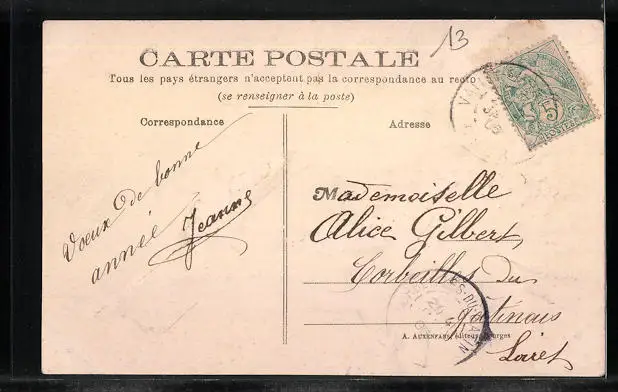 13
CARTE POSTALE
Tous les pays étrangers n'acceptent pas la correspondance au recto
(se renseigner à la poste)
Correspondance
Adresse
Voeux de bonne
année
Jeanne
Mademoiselle
Alice Gilbert
Corbeilles du
gatinais
Loiret
A. AUXENFANS, éditeur, Bourges
5
POSTES